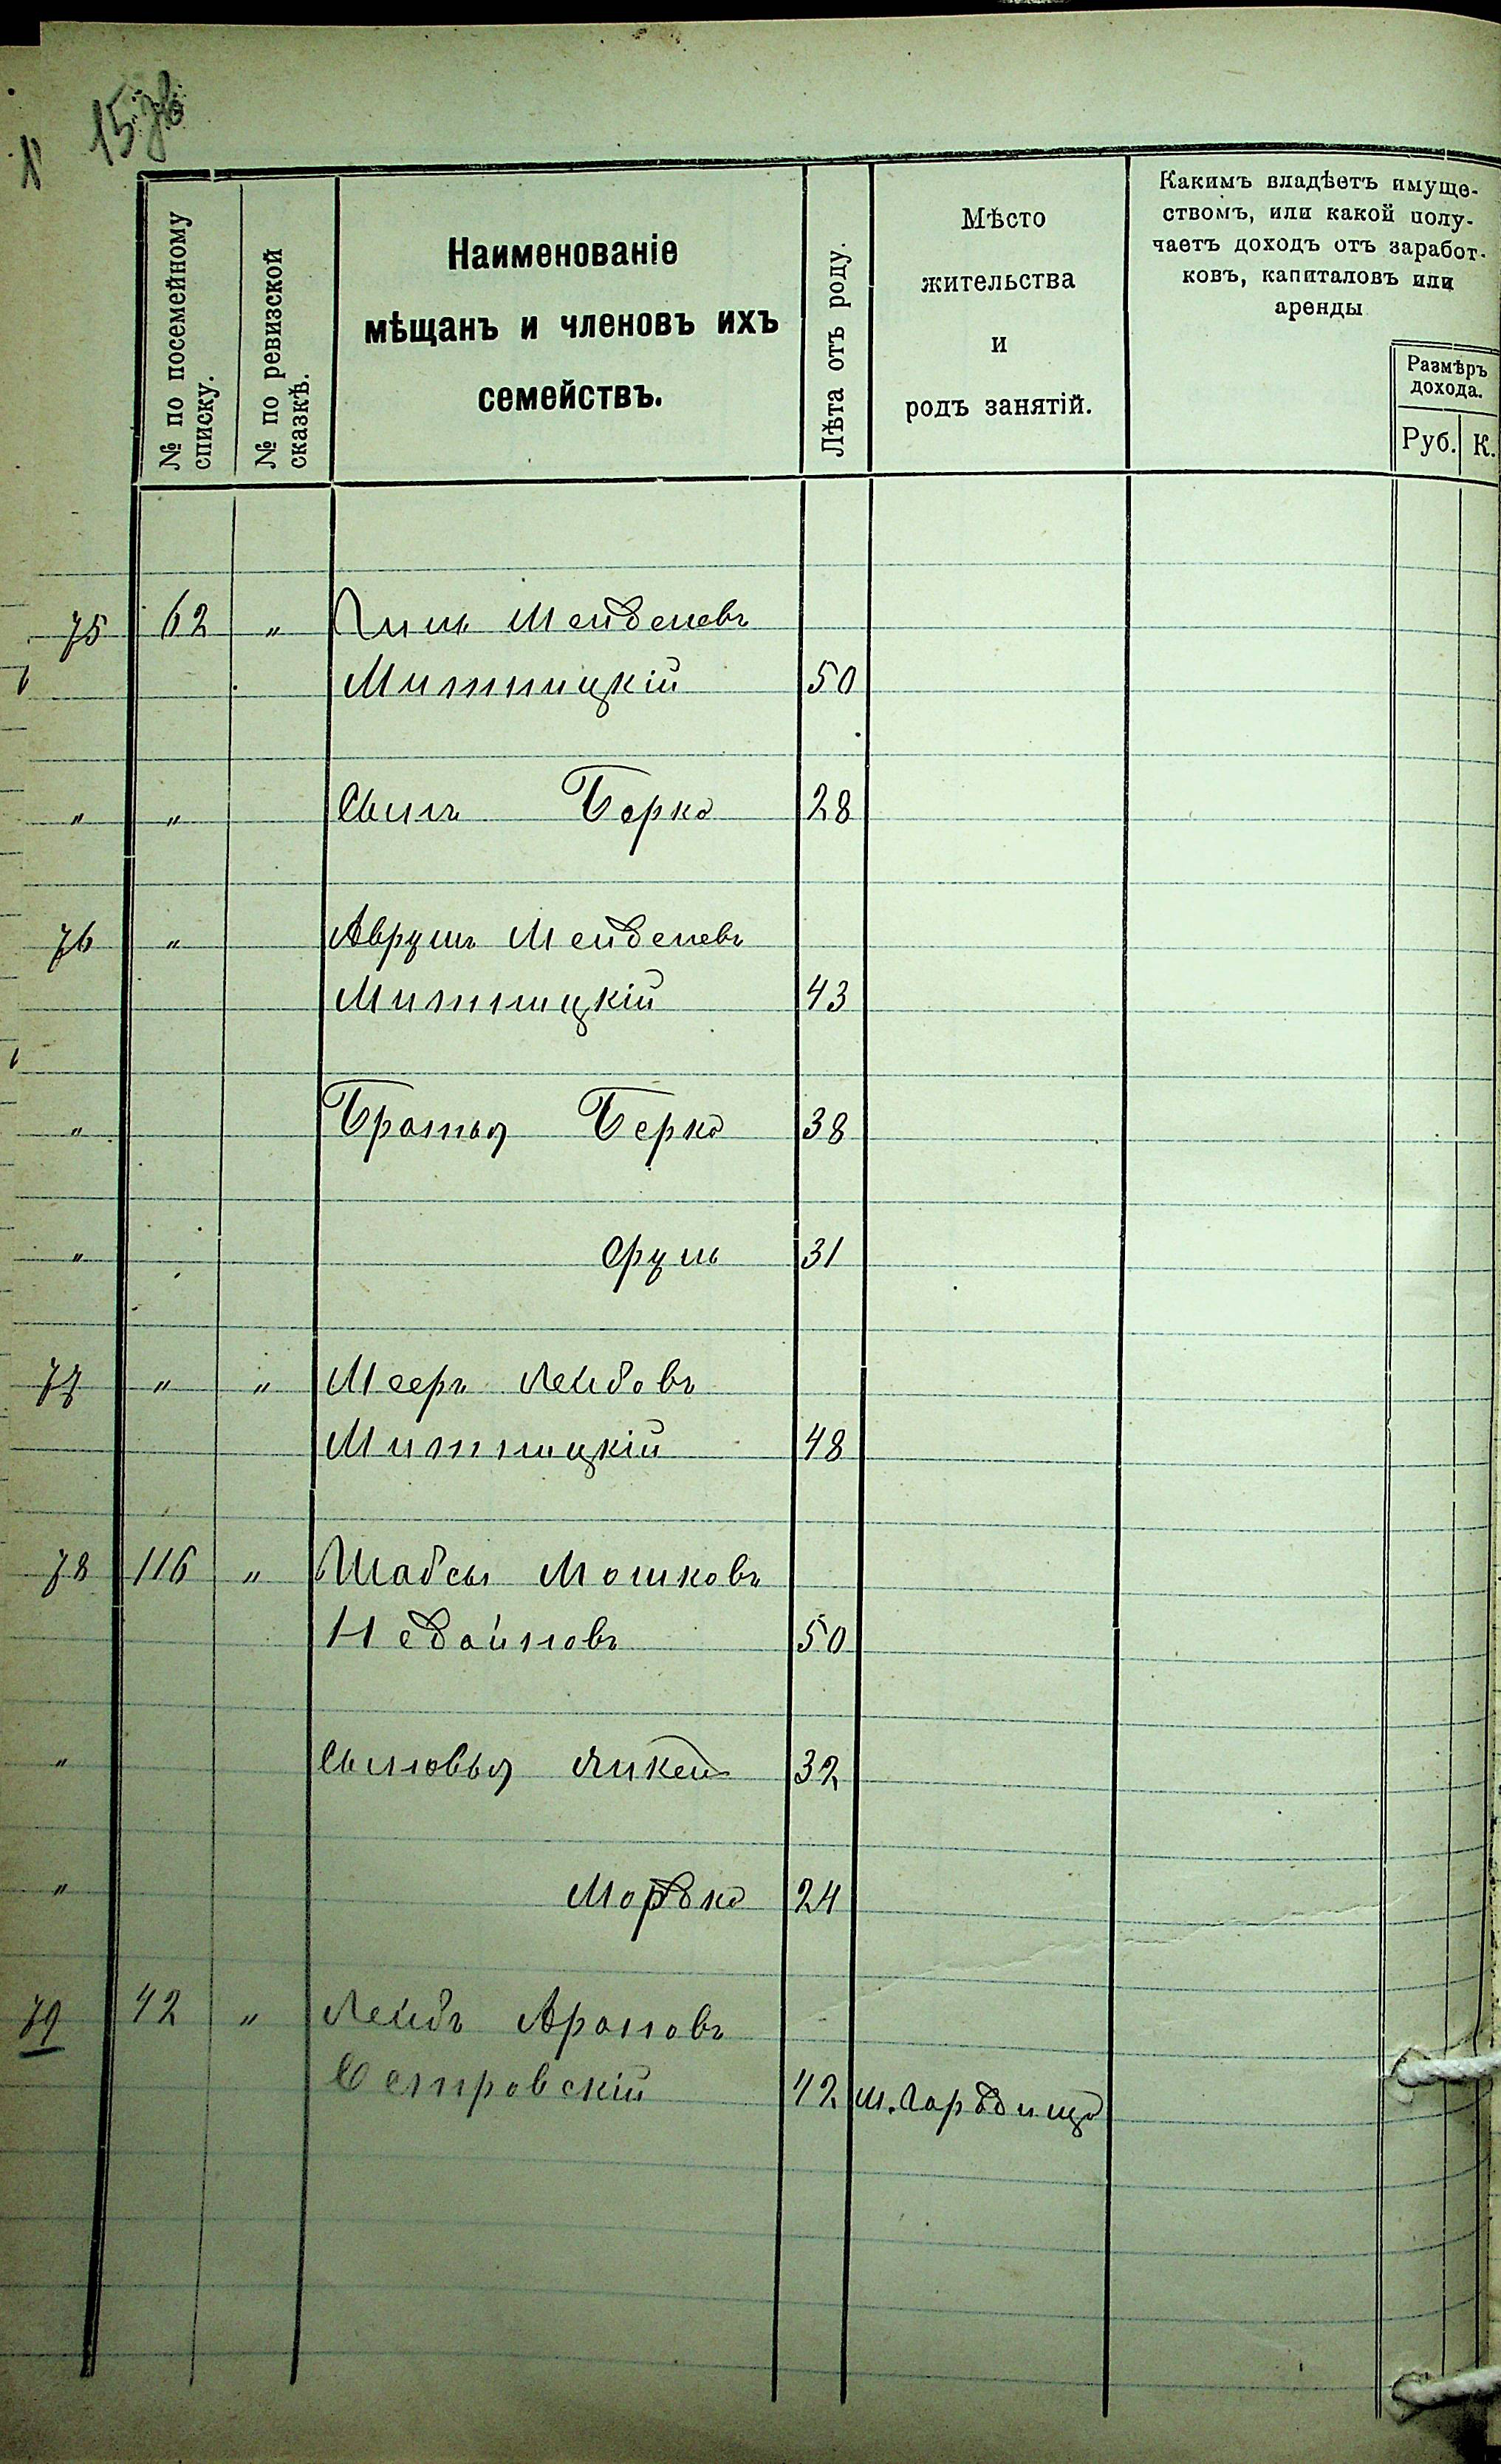 15 зв
№ по посемейному списку.
№ по ревизской сказкѣ.
Наименованіе
мѣщанъ и членовъ ихъ
семействъ.
Лѣта отъ роду.
Мѣсто
жительства
и
родъ занятій.
Какимъ владѣетъ имуще-
ствомъ, или какой полу-
чаетъ доходъ отъ заработ-
ковъ, капиталовъ или
аренды
Размѣръ
дохода.
Руб. К.
75 62 " Менделевъ
Митницкій 50
" " Сынъ Берко 28
76 " Аврумъ Менделевъ
Митницкій 43
" Братья Берко 38
" Сруль 31
77 " " Мееръ Лейбовъ
Митницкій 48
78 116 " Шабсы Мошковъ
50
" Сыновья 32
" Мордко 24
79 42 " Лейбъ Ароновъ
42 м. Гордища